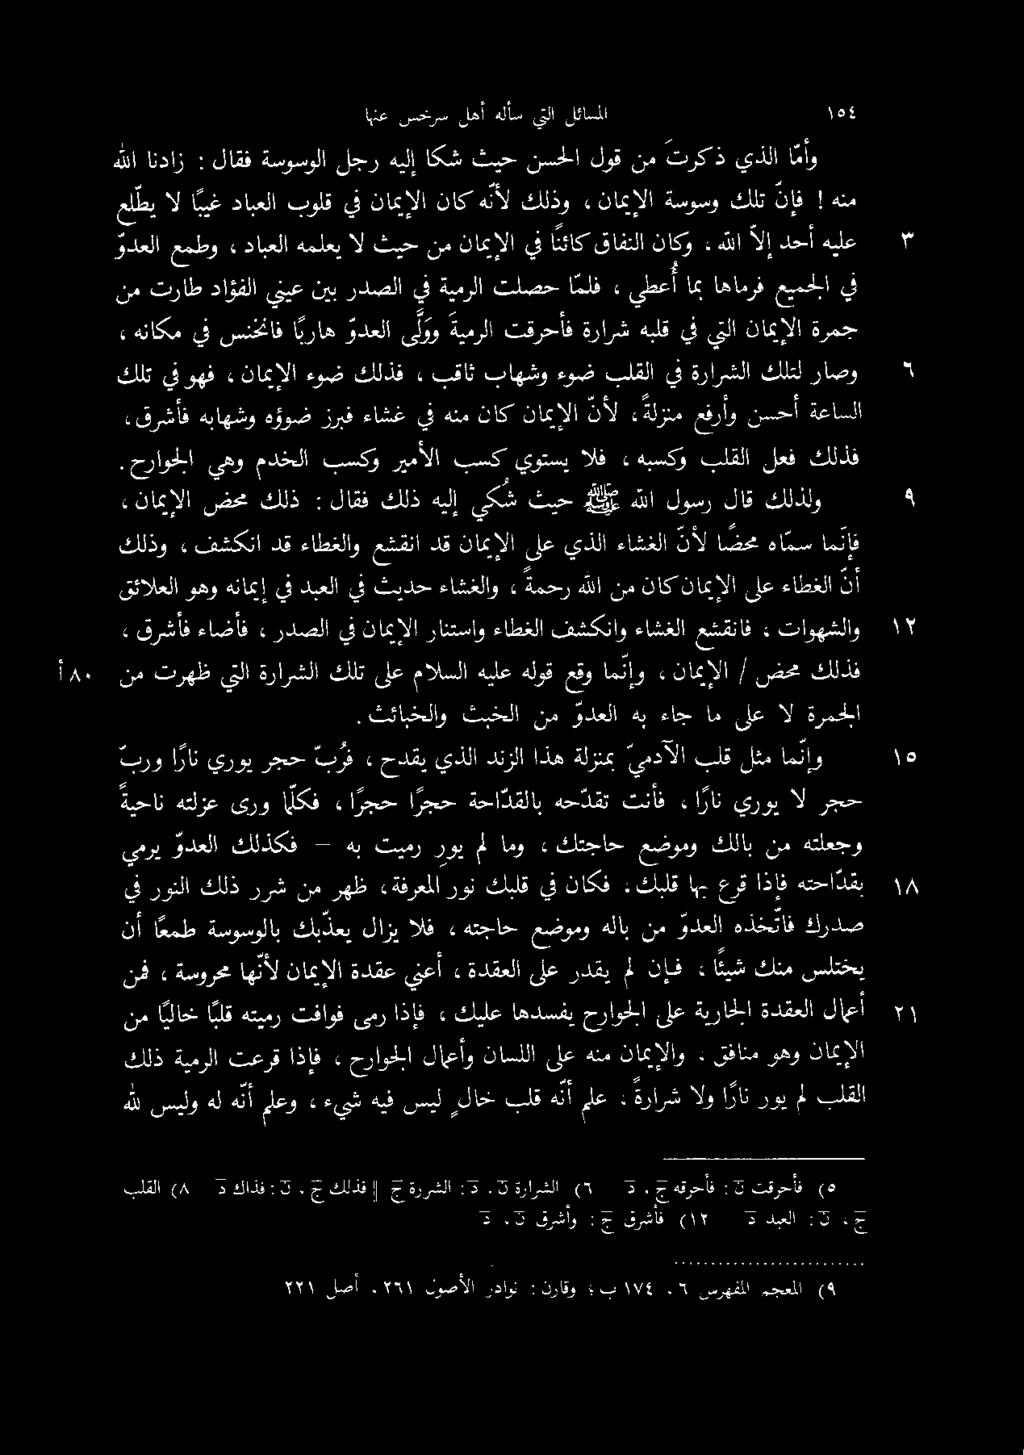 ١٥٤ المسائل التي سأله أهل سرخس عنها
وأمّا الذي ذكرتَ من قول الحسن حيث شكا إليه رجل الوسوسة فقال : زادنا الله
منه ! فإنّ تلك وسوسة الإيمان ، وذلك لأنّه كان الإيمان في قلوب العباد غيبًا لا يطّلع
٣ عليه أحد إلاّ الله ، وكان النفاق كائنًا في الإيمان من حيث لا يعلمه العباد ، وطمع العدوّ
في الجميع فرماها بما أُعطي ، فلمّا حصلت الرمية في الصدر بين عيني الفؤاد طارت من
جمرة الإيمان التي في قلبه شرارة فأحرقت الرميةَ وولَّى العدوّ هاربًا فانخنس في مكانه ،
٦ وصار لتلك الشرارة في القلب ضوء وشهاب ثاقب ، فذلك ضوء الإيمان ، فهو في تلك
الساعة أحسن وأرفع منزلةً ، لأنّ الإيمان كان منه في غشاء فبرز ضوؤه وشهابه فأشرق ،
فذلك فعل القلب وكسبه ، فلا يستوي كسب الأمير وكسب الخدم وهي الجوارح .
٩ ولذلك قال رسول الله ﷺ حيث شُكي إليه ذلك فقال : ذلك محض الإيمان ،
فإنّما سمّاه محضًا لأنّ الغشاء الذي على الإيمان قد انقشع والغطاء قد انكشف ، وذلك
أنّ الغطاء على الإيمان كان من الله رحمةً ، والغشاء حديث في العبد في إيمانه وهو العلائق
١٢ والشهوات ، فانقشع الغشاء وانكشف الغطاء واستنار الإيمان في الصدر ، فأضاء فأشرق ،
فذلك محض / الإيمان ، وإنّما وقع قوله عليه السلام على تلك الشرارة التي ظهرت من ٨٠أ
الجمرة لا على ما جاء به العدوّ من الخبث والخبائث .
١٥ وإنّما مثل قلب الآدميّ بمنزلة هذا الزند الذي يقدح ، فرُبّ حجر يوري نارًا وربّ
حجر لا يوري نارًا ، فأنت تقدّحه بالقدّاحة حجرًا حجرًا ، فكلّما ورى عزلته ناحيةً
وجعلته من بالك وموضع حاجتك ، وما لم يورِ رميت به – فكذلك العدوّ يرمي
١٨ بقدّاحته فإذا قرع بها قلبك ، فكان في قلبك نور المعرفة ، ظهر من شرر ذلك النور في
صدرك فاتّخذه العدوّ من باله وموضع حاجته ، فلا يزال يعذّبك بالوسوسة طمعًا أن
يختلس منك شيئًا ، فإن لم يقدر على العقدة ، أعني عقدة الإيمان لأنّها محروسة ، فمن
٢١ أعمال العقدة الجارية على الجوارح يفسدها عليك ، فإذا رمى فوافت رميته قلبًا خاليًا من
الإيمان وهو منافق ، والإيمان منه على اللسان وأعمال الجوارح ، فإذا قرعت الرمية ذلك
القلب لم يور نارًا ولا شرارةً ، علم أنّه قلب خالٍ ليس فيه شيء ، وعلم أنّه له وليس لله
٥) فأحرقت ن : فأحرقه ج ، د ٦) الشرارة ن ، د : الشررة ج || فذلك ج ، ن : فذاك د ٨) القلب
ج ، ن : العبد د ١٢) فأشرق ج : وأشرق ن ، د
٩) المعجم المفهرس ٦ ، ١٧٤ ب ؛ وقارن : نوادر الأصول ٢٦١ ، أصل ٢٢١